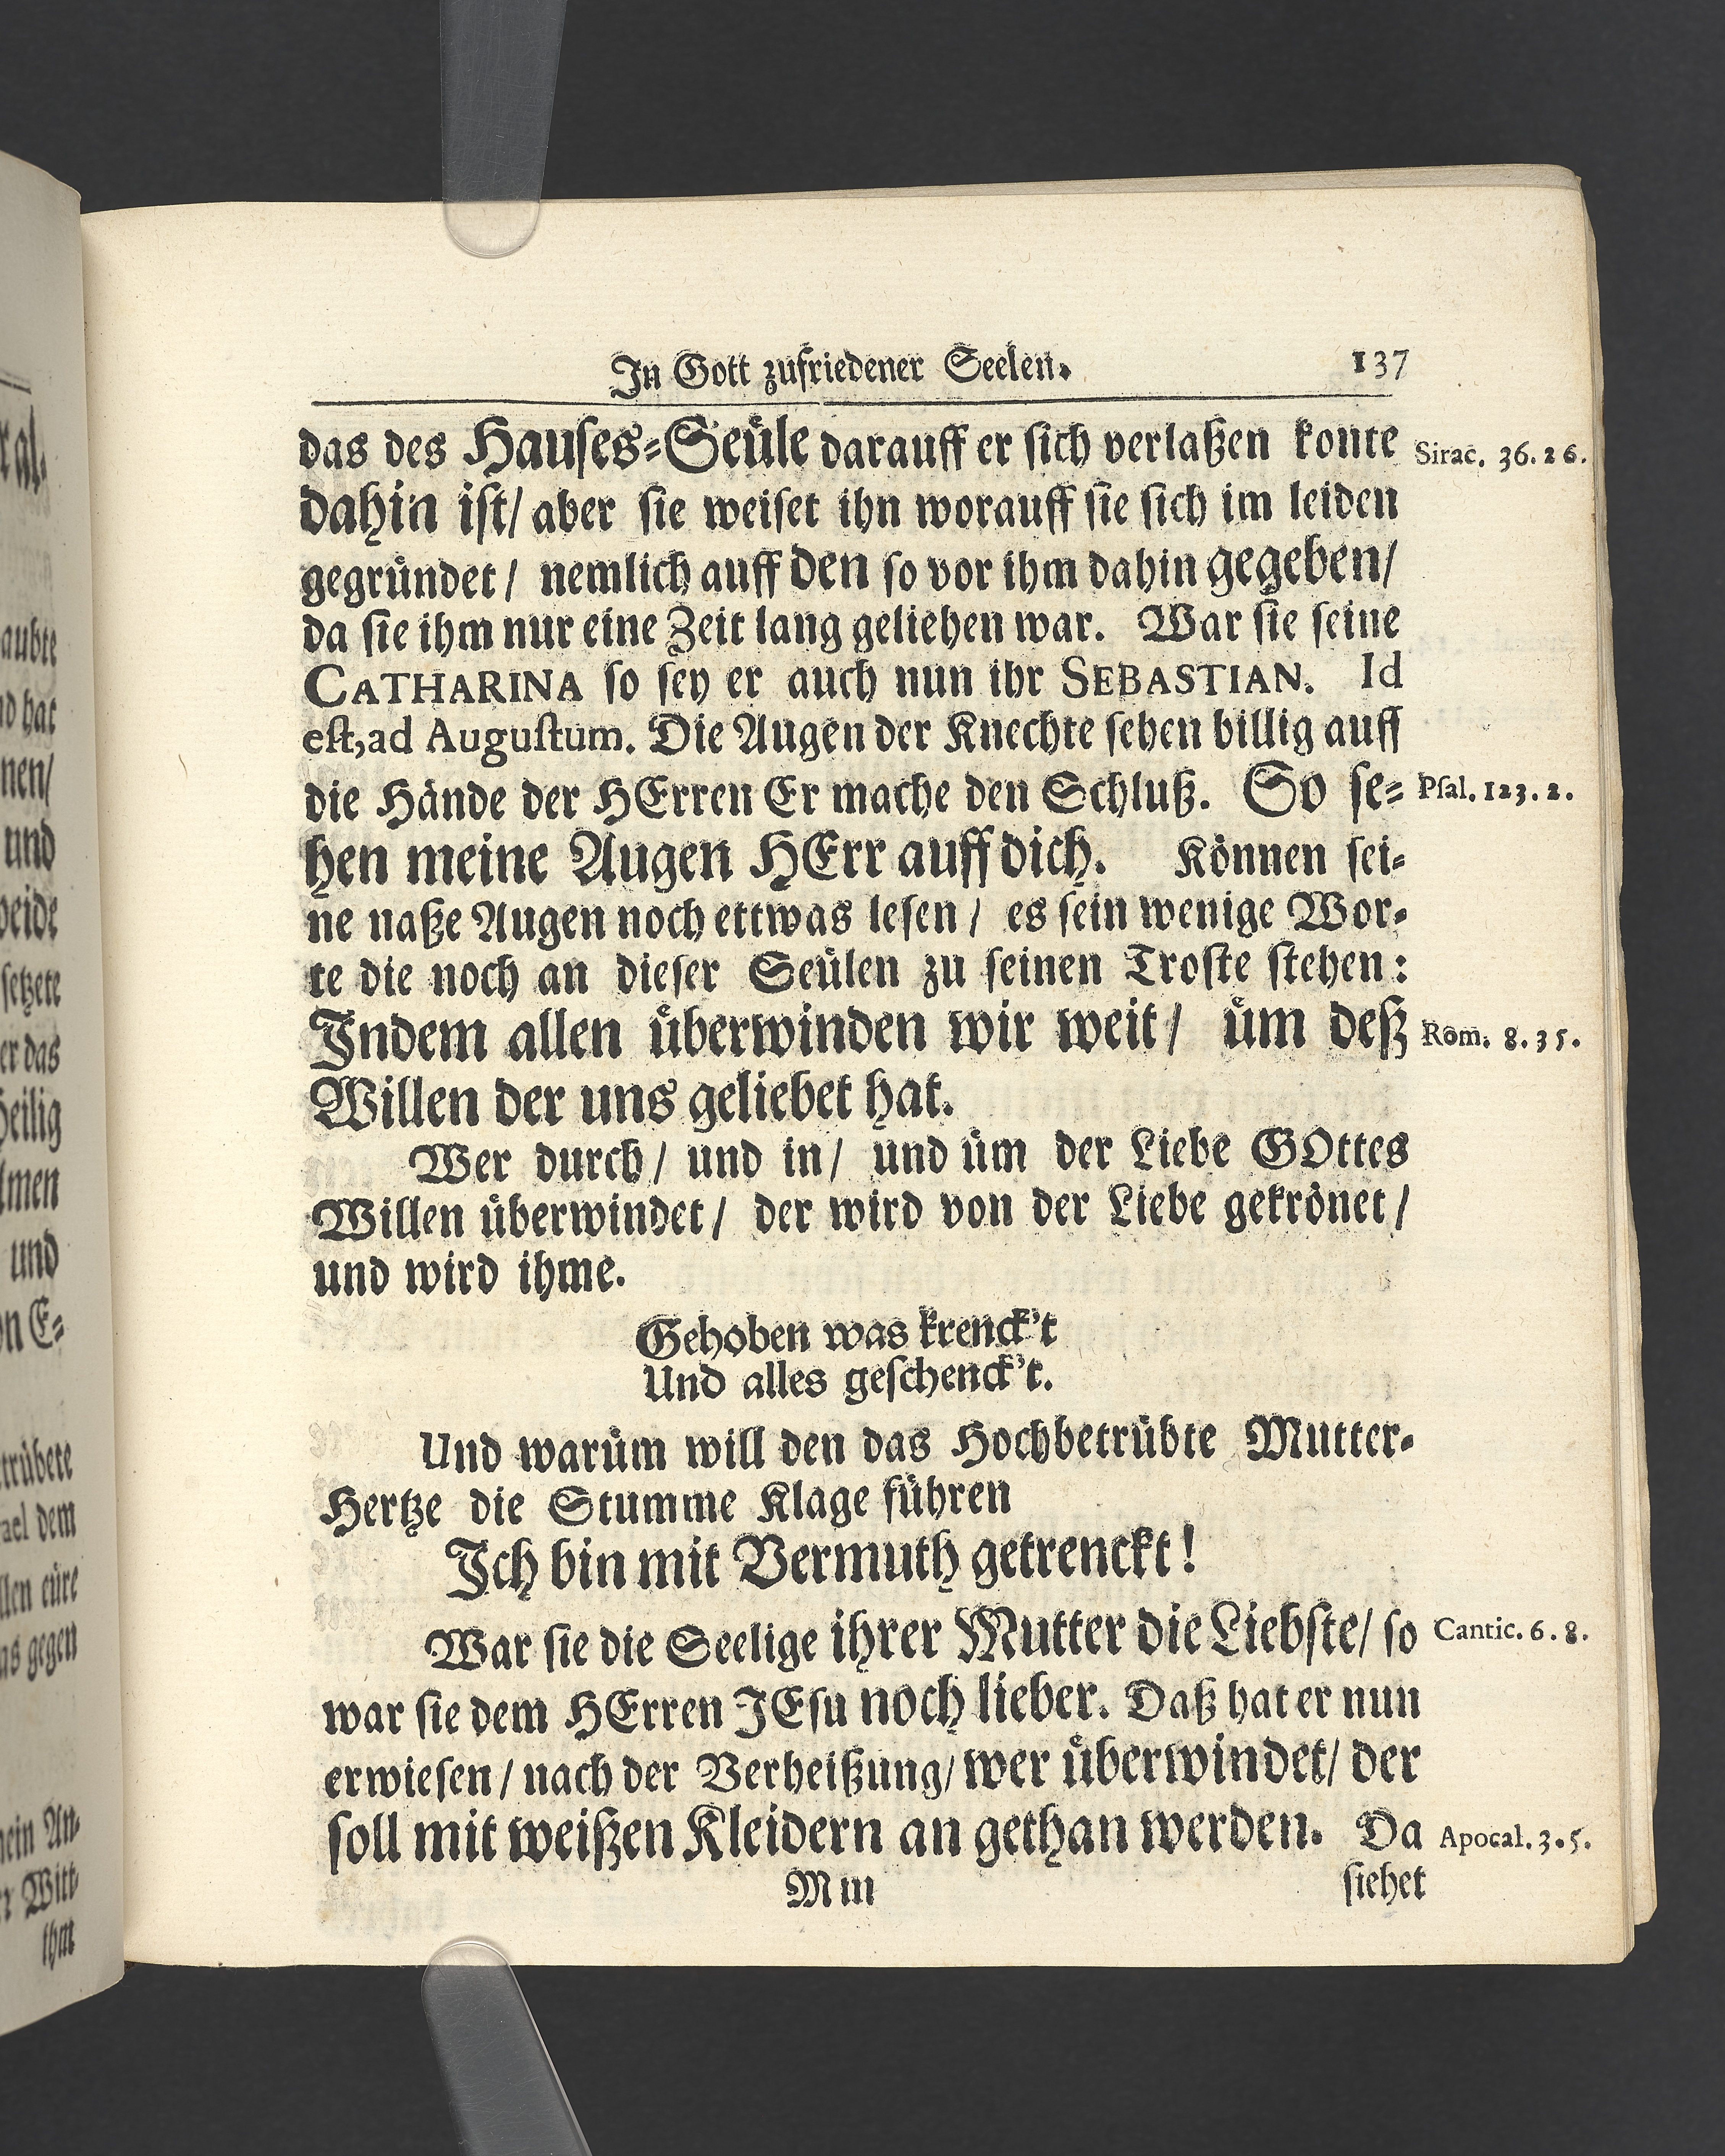 In Gott zufriedener Seelen. 137
das des Hauses=Seůle darauff er sich verlaßen konte Sirac. 36. 26.
dahin ist/ aber sie weiset ihn worauff sie sich im leiden
gegründet/ nemlich auff den so vor ihm dahin gegeben/
da sie ihm nur eine Zeit lang geliehen war. War sie seine
CATHARINA so sey er auch nun ihr SEBASTIAN. Id
est, ad Augustum. Die Augen der Knechte sehen billig auff
die Hände der HErren Er mache den Schluß. So se= Psal. 123. 2.
hen meine Augen HErr auff dich. Können sei-
ne naße Augen noch ettwas lesen/ es sein wenige Wor-
te die noch an dieser Seülen zu seinen Troste stehen:
Indem allen ůberwinden wir weit/ ům deß Rom. 8. 35.
Willen der uns geliebet hat.
Wer durch/ und in/ und üm der Liebe GOttes
Willen überwindet/ der wird von der Liebe gekrönet/
und wird ihme.
Gehoben was krenck't
Und alles geschenck't.
Und warüm will den das Hochbetrübte Mutter-
Hertze die Stumme Klage führen
Ich bin mit Vermuth getrenckt!
War sie die Seelige ihrer Mutter die Liebste/ so Cantic. 6. 8.
war sie dem HErren JEsu noch lieber. Daß hat er nun
erwiesen/ nach der Verheißung/ wer ůberwindet/ der
soll mit weißen Kleidern an gethan werden. Da Apocal. 3. 5.
Mm siehet